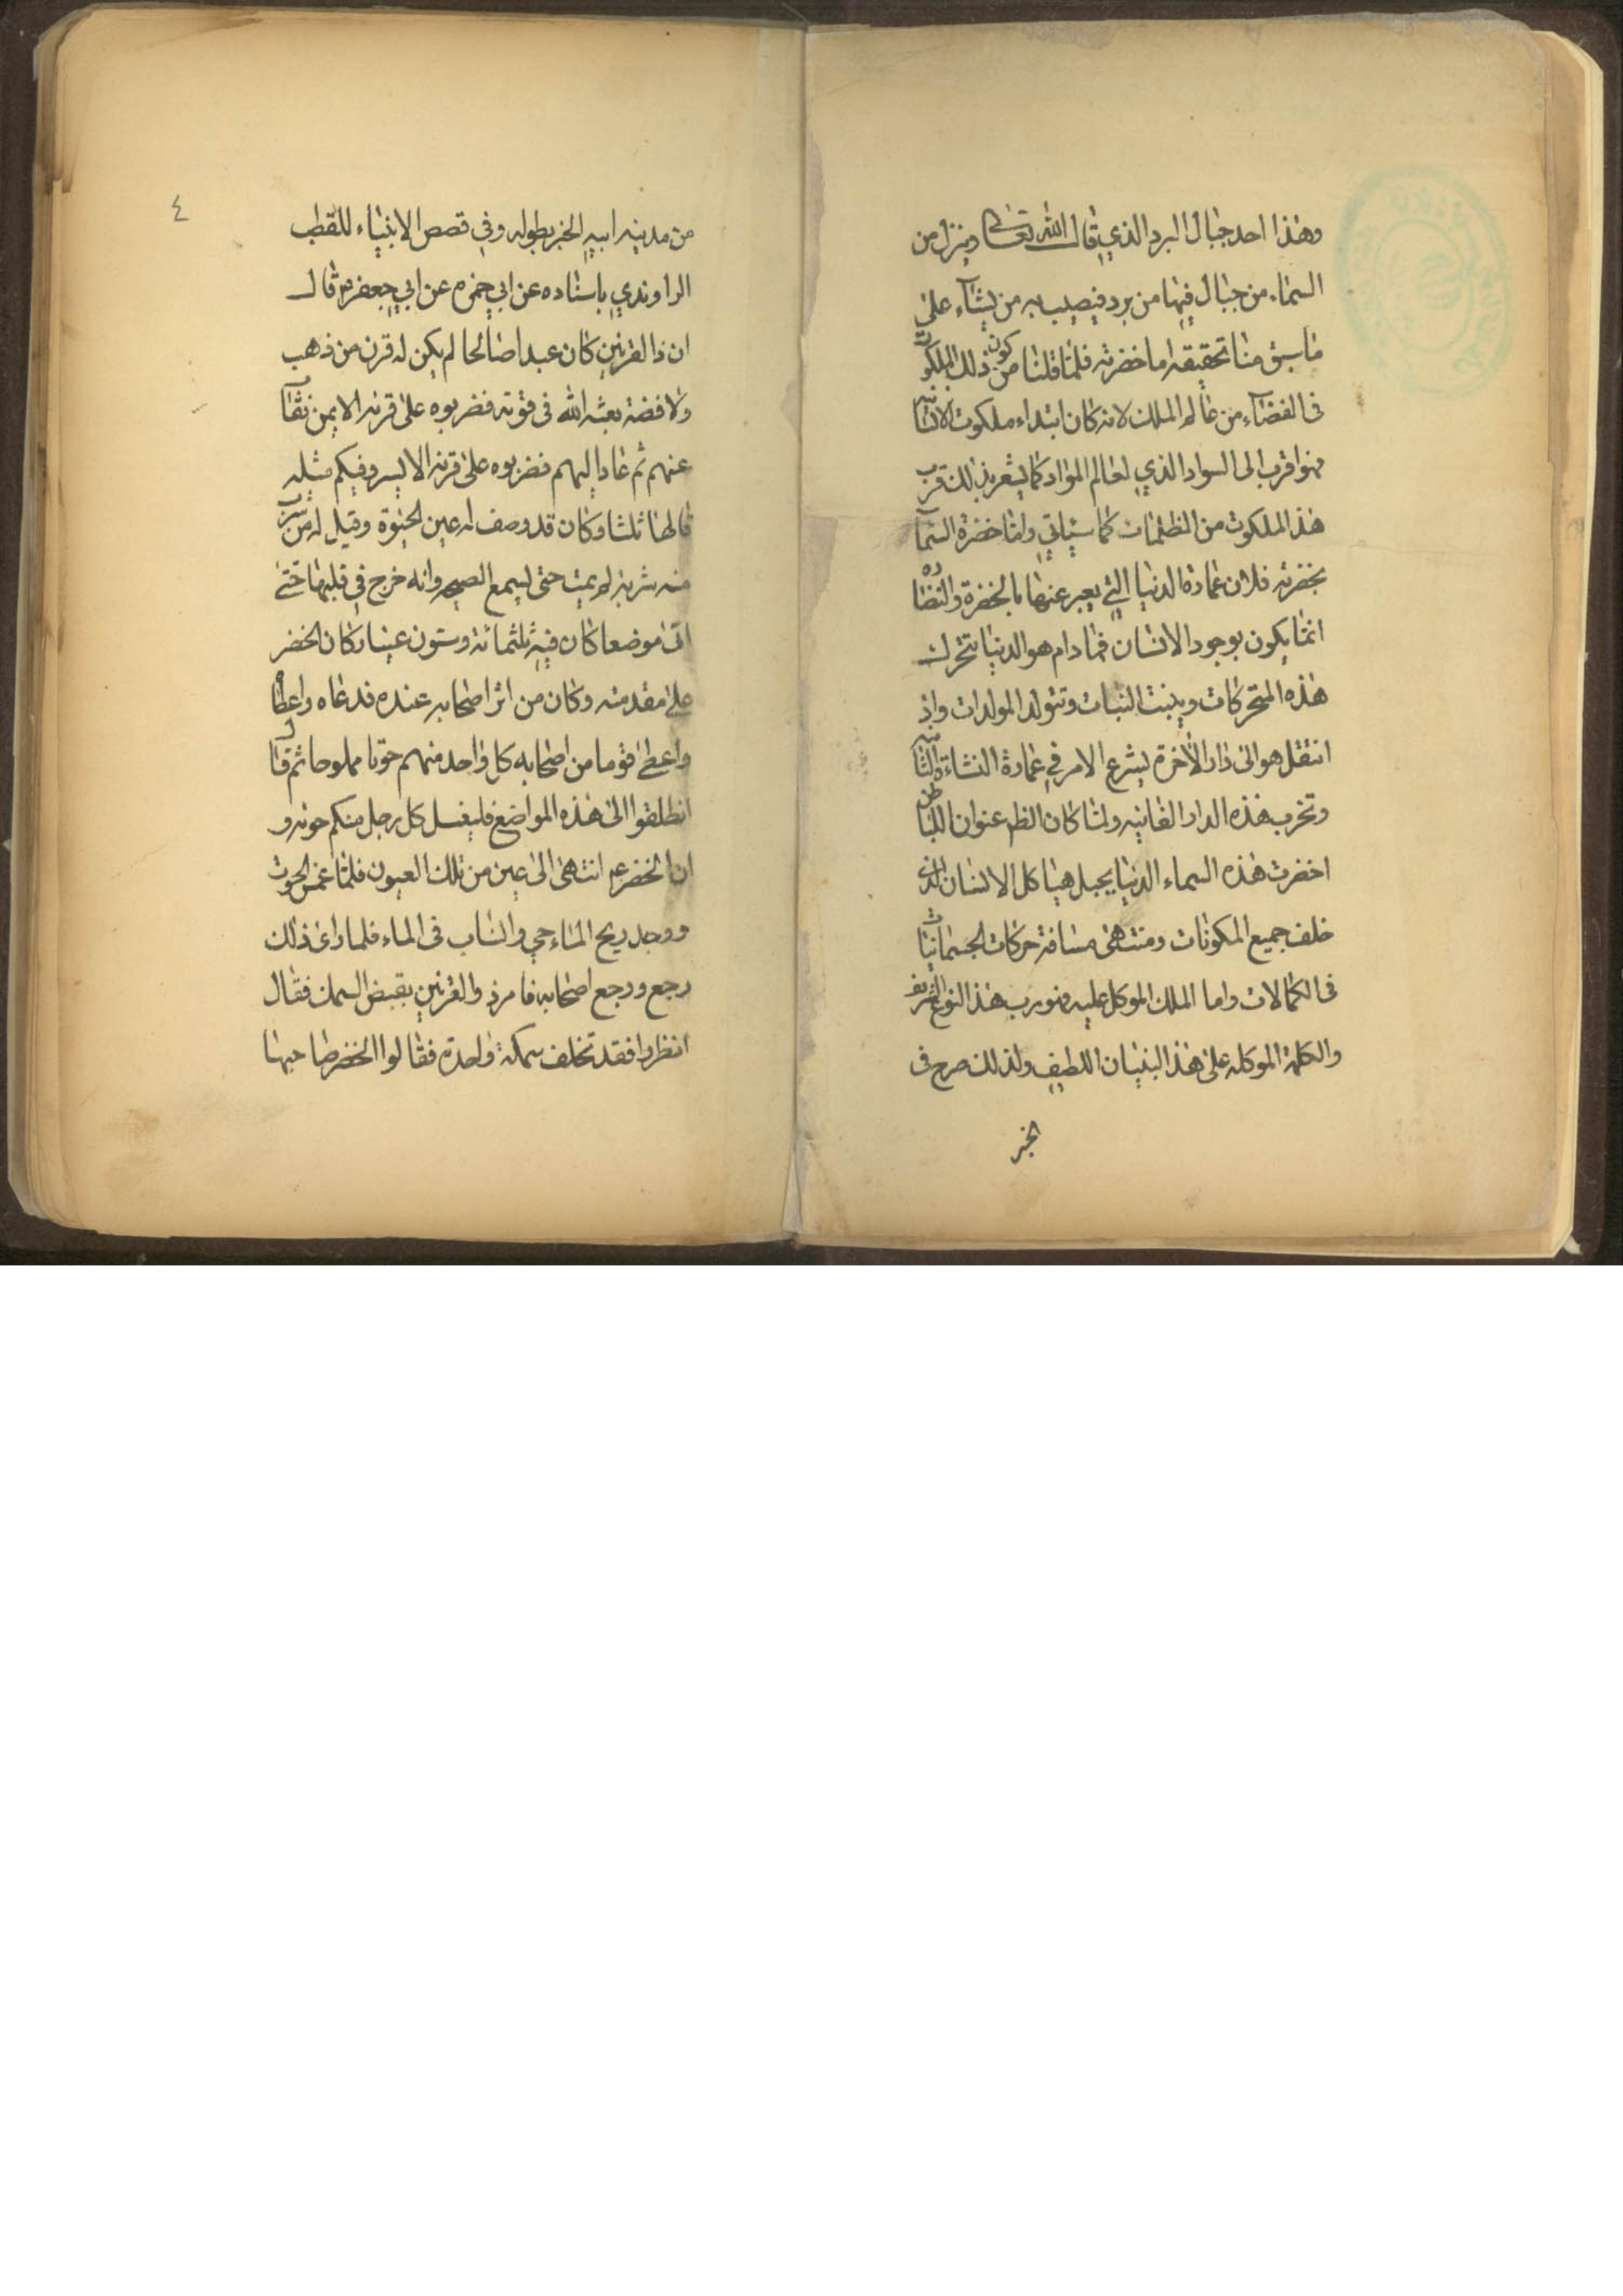 وهذا احد جبال البرد الذي قال الله تعالى وينزل من
السماء من جبال فيها من برد فيصيب به من يشآء على
ما سبق منا تحقيقه اما خضرته فلما قلنا من كون ذلك الملكوت
فى الفضآء من عالم الملك لانه كان ابتداء ملكوت الانسا
فهو اقرب الى السواد الذي لعالم المواد كما يشعر بذلك قرب
هذ الملكوت من الظلمات كما سياتي واما خضرة السمآ
بخضرته فلان عمارة الدنيا التي يعبر عنها بالخضرة والنضاره
انما يكون بوجود الانسان فما دام هو الدنيا تتحرك
هذه المتحركات وينبت النبات وتتولد المولدات واذ
انتقل هو الى دار الاخرة يشرع الامر في عمارة النشاة الثانيه
وتخرب هذه الدار الفانيه ولما كان الظم عنوان للباطن
اخضرت هذه السماء الدنيا بجبل هياكل الانسان الذى
خلف جميع المكونات ومنتهى مسافة حركات الجسمانيات
فى الكمالات واما الملك الموكل عليه فهو رب هذ النوع الشريف
والكلمة الموكله على هذ البنيان اللطيف ولذلك صرح فى
الخبر
٤
من مدينه ابيه الخبر بطوله وفي قصص الانبياء للقطب
الراوندي باسناده عن ابي حمزه عن ابي جعفر ع قال
ان ذا القرنين كان عبدا صالحا لم يكن له قرن من ذهب
ولا فضة بعثه الله فى قومه فضربوه على قرنه الايمن فغاب
عنهم ثم عاد اليهم فضربوه على قرنه الايسر وفيكم مثله
قالها ثلثا وكان قد وصف له عين الحيوة وقيل له من شرب
منه شربة لم يمت حتى يسمع الصيحه وانه خرج في طلبها حتى
اتى موضعا كان فيه ثلثمائة وستون عينا وكان الخضر
على مقدمته وكان من اثر اصحابه عنده فدعاه واعطاه
واعطى قوما من اصحابه كل واحد منهم حوتا مملوحا ثم قال
انطلقوا الى هذه المواضع فليغسل كل رجل منكم حوته و
ان الخضر ع انتهى الى عين من تلك العيون فلما غمس الحوت
ووجد ريح الماء حي وانساب فى الماء فلما راى ذلك
رجع ورجع اصحابه فامر ذو القرنين بقبض السمك فقال
انظروا فقد تخلف سمكة واحدة فقالوا الخضر صاحبها